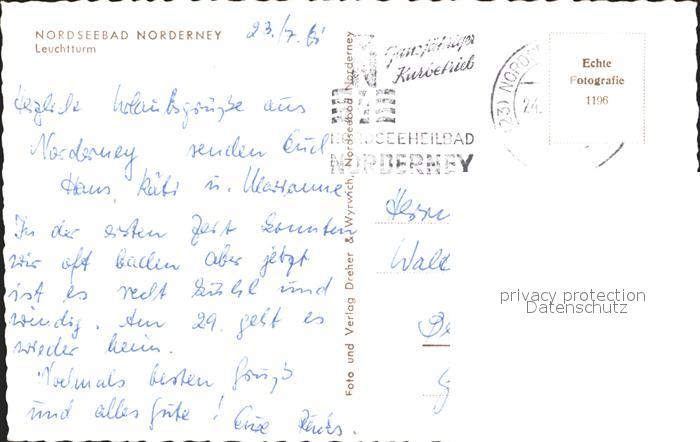 NORDSEEBAD NORDERNEY
Leuchtturm
23./7. 61
Herzliche Urlaubsgrüße aus
Norderney senden Euch
Hans, Käti u. Marianne
In der ersten Zeit konnten
wir oft baden aber jetzt
ist es recht kühl und
windig. Am 29. geht es
wieder heim.
Nochmals besten Gruß
und alles Gute! Eure
Foto und Verlag Dreher & Wyrwich, Nordseebad Norderney
Ganzjähriger
Kurbetrieb
NORDSEEHEILBAD
NORDERNEY
(23) NORD
24.
Echte
Fotografie
1196
Herrn
Wal
privacy protection
Datenschutz